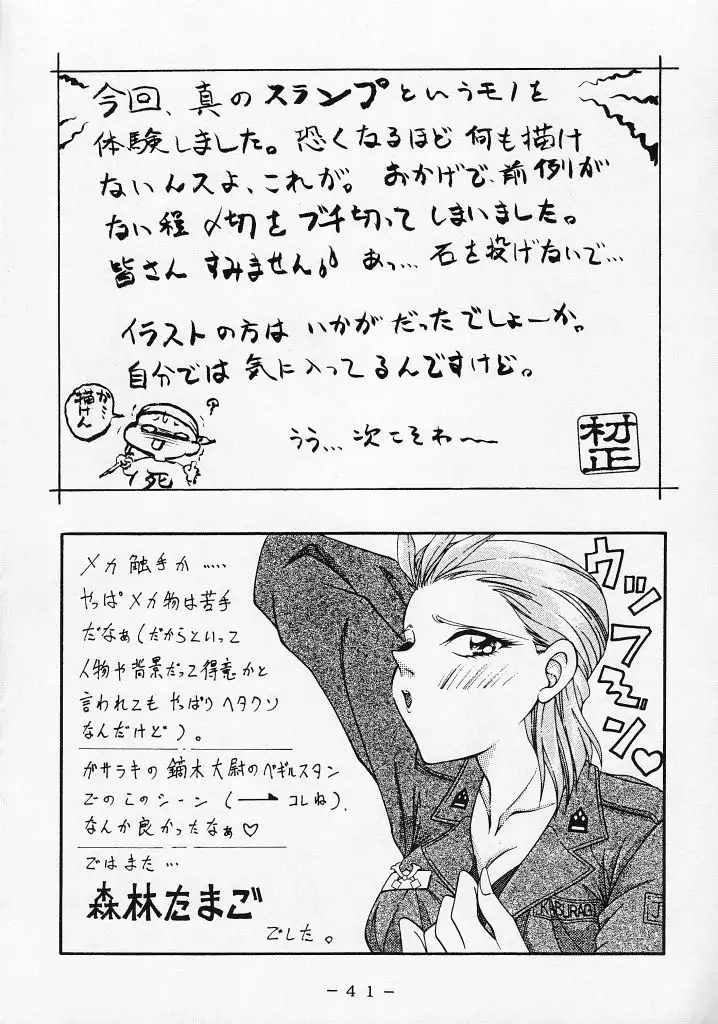 今回、真のスランプというモノを
体験しました。恐くなるほど何も描け
ないんスよ、これが。おかげで、前例が
ない程〆切をブチ切ってしまいました。
皆さんすみません♪ あっ…石を投げないで…
イラストの方はいかがだったでしょーか。
自分では気に入ってるんですけど。
うう…次こそわ〜
が…
描けん
死
村正
メカ触手か……
やっぱメカ物は苦手
だなぁ(だからといって
人物や背景だって得意かと
言われてもやっぱりヘタクソ
なんだけど)。
ガサラキの鏑木大尉のベギルスタン
でのこのシーン(→コレね)、
なんか良かったなぁ♡
ではまた…
森林たまご
でした。
ウッフ〜ン♡
KABURAGI
J
-41-